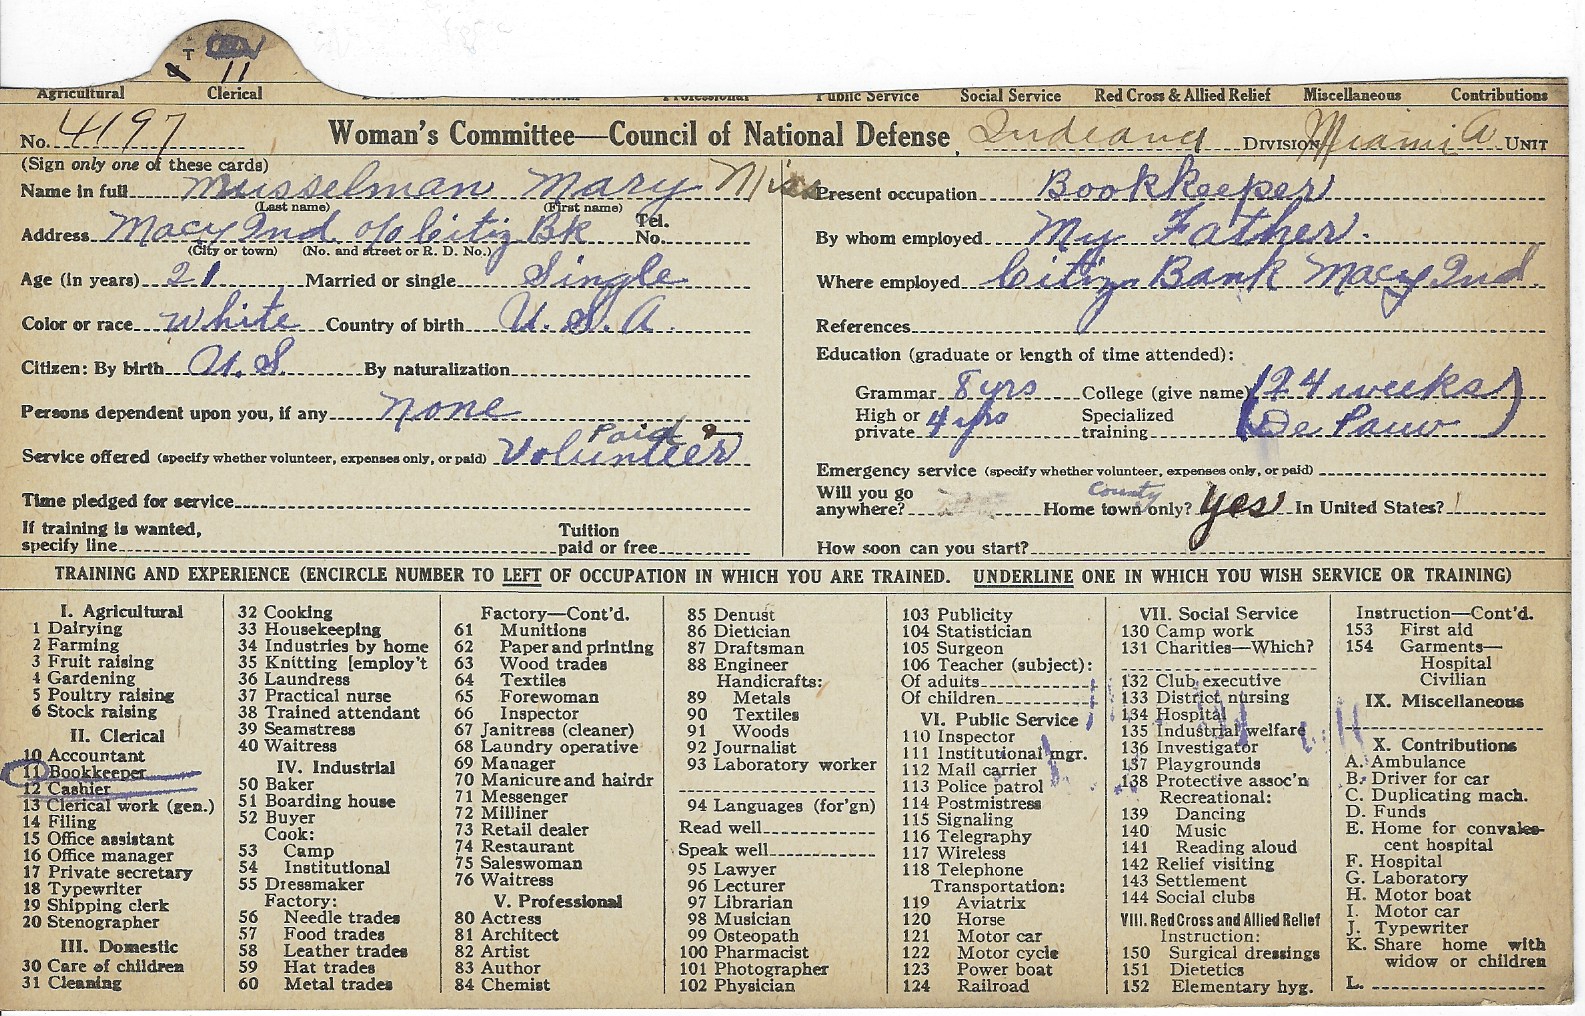 T
11
Agricultural Clerical Professional Public Service Social Service Red Cross & Allied Relief Miscellaneous Contributions
No. 4197 Woman's Committee—Council of National Defense, Indiana DIVISION Miami A UNIT
(Sign only one of these cards)
Name in full Musselman Mary Miss
(Last name) (First name)
Address Macy Ind. c/o Citiz Bk Tel. No.
(City or town) (No. and street or R. D. No.)
Age (in years) 21 Married or single Single
Color or race White Country of birth U. S. A.
Citizen: By birth U. S. By naturalization
Persons dependent upon you, if any none
Paid ?
Service offered (specify whether volunteer, expenses only, or paid) Volunteer
Time pledged for service
If training is wanted, specify line Tuition paid or free
Present occupation Bookkeeper
By whom employed My Father.
Where employed Citizn Bank Macy Ind.
References
Education (graduate or length of time attended):
Grammar 8 yrs College (give name) (24 weeks)
High or private 4 yrs Specialized training (De Pauw)
Emergency service (specify whether volunteer, expenses only, or paid)
County
Will you go anywhere? Home town only? Yes In United States?
How soon can you start?
TRAINING AND EXPERIENCE (ENCIRCLE NUMBER TO LEFT OF OCCUPATION IN WHICH YOU ARE TRAINED. UNDERLINE ONE IN WHICH YOU WISH SERVICE OR TRAINING)
I. Agricultural
1 Dairying
2 Farming
3 Fruit raising
4 Gardening
5 Poultry raising
6 Stock raising
II. Clerical
10 Accountant
11 Bookkeeper
12 Cashier
13 Clerical work (gen.)
14 Filing
15 Office assistant
16 Office manager
17 Private secretary
18 Typewriter
19 Shipping clerk
20 Stenographer
III. Domestic
30 Care of children
31 Cleaning
32 Cooking
33 Housekeeping
34 Industries by home
35 Knitting [employ't
36 Laundress
37 Practical nurse
38 Trained attendant
39 Seamstress
40 Waitress
IV. Industrial
50 Baker
51 Boarding house
52 Buyer
Cook:
53 Camp
54 Institutional
55 Dressmaker
Factory:
56 Needle trades
57 Food trades
58 Leather trades
59 Hat trades
60 Metal trades
Factory—Cont'd.
61 Munitions
62 Paper and printing
63 Wood trades
64 Textiles
65 Forewoman
66 Inspector
67 Janitress (cleaner)
68 Laundry operative
69 Manager
70 Manicure and hairdr
71 Messenger
72 Milliner
73 Retail dealer
74 Restaurant
75 Saleswoman
76 Waitress
V. Professional
80 Actress
81 Architect
82 Artist
83 Author
84 Chemist
85 Dentist
86 Dietician
87 Draftsman
88 Engineer
Handicrafts:
89 Metals
90 Textiles
91 Woods
92 Journalist
93 Laboratory worker
94 Languages (for'gn)
Read well
Speak well
95 Lawyer
96 Lecturer
97 Librarian
98 Musician
99 Osteopath
100 Pharmacist
101 Photographer
102 Physician
103 Publicity
104 Statistician
105 Surgeon
106 Teacher (subject):
Of adults
Of children
VI. Public Service
110 Inspector
111 Institutional mgr.
112 Mail carrier
113 Police patrol
114 Postmistress
115 Signaling
116 Telegraphy
117 Wireless
118 Telephone
Transportation:
119 Aviatrix
120 Horse
121 Motor car
122 Motor cycle
123 Power boat
124 Railroad
VII. Social Service
130 Camp work
131 Charities—Which?
132 Club executive
133 District nursing
134 Hospital
135 Industrial welfare
136 Investigator
137 Playgrounds
138 Protective assoc'n
Recreational:
139 Dancing
140 Music
141 Reading aloud
142 Relief visiting
143 Settlement
144 Social clubs
VIII. Red Cross and Allied Relief
Instruction:
150 Surgical dressings
151 Dietetics
152 Elementary hyg.
Instruction—Cont'd.
153 First aid
154 Garments—
Hospital
Civilian
IX. Miscellaneous
X. Contributions
A. Ambulance
B. Driver for car
C. Duplicating mach.
D. Funds
E. Home for convalescent hospital
F. Hospital
G. Laboratory
H. Motor boat
I. Motor car
J. Typewriter
K. Share home with
widow or children
L.